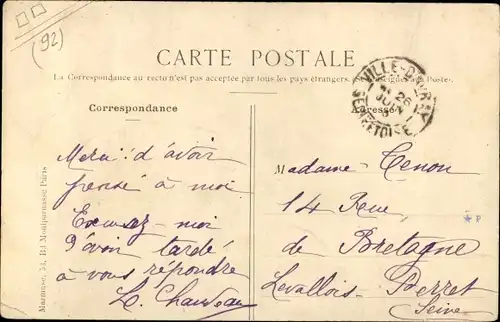 (92)
CARTE POSTALE
La Correspondance au recto n'est pas acceptée par tous les pays étrangers. Postes
Correspondance
Adresse
VILLE-D'AVRAY
26
SEINE-ET-OISE
Merci d'avoir
pensé à moi
Excusez-moi
d'avoir tardé
à vous répondre
L. Chauveau
Madame Tenon
14 Rue
de Bretagne
Levallois-Perret
Seine
Marmuse, 53, Bd Montparnasse Paris